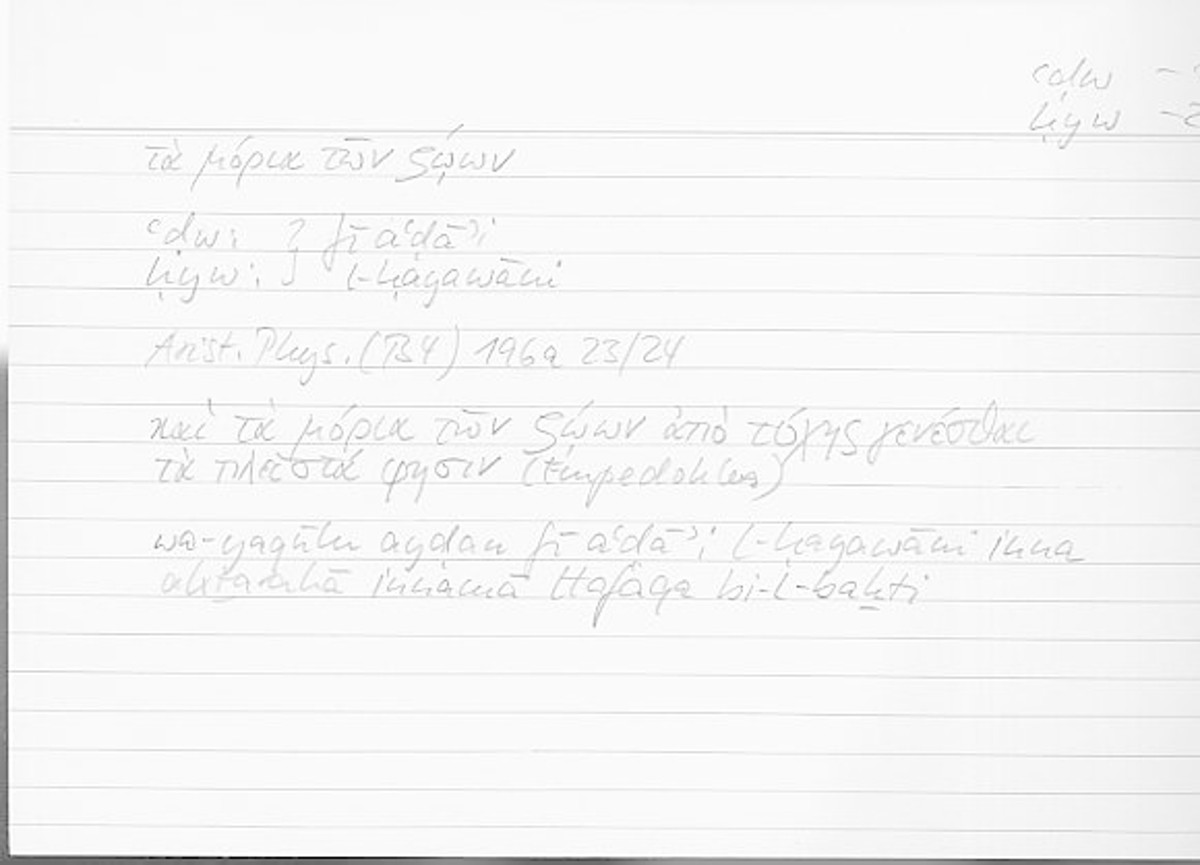 ʿḍw -
ḥyw -2
τὰ μόρια τῶν ζῴων
ʿḍw: } fī aʿḍāʾi
ḥyw: } l-ḥayawāni
Arist. Phys. (B4) 196a 23/24
καὶ τὰ μόρια τῶν ζῴων ἀπὸ τύχης γενέσθαι
τὰ πλεῖστά φησιν (Empedokles)
wa-yaqūlu ayḍan fī aʿḍāʾi l-ḥayawāni inna
akṯarahā innamā ttafaqa bi-l-baḫti